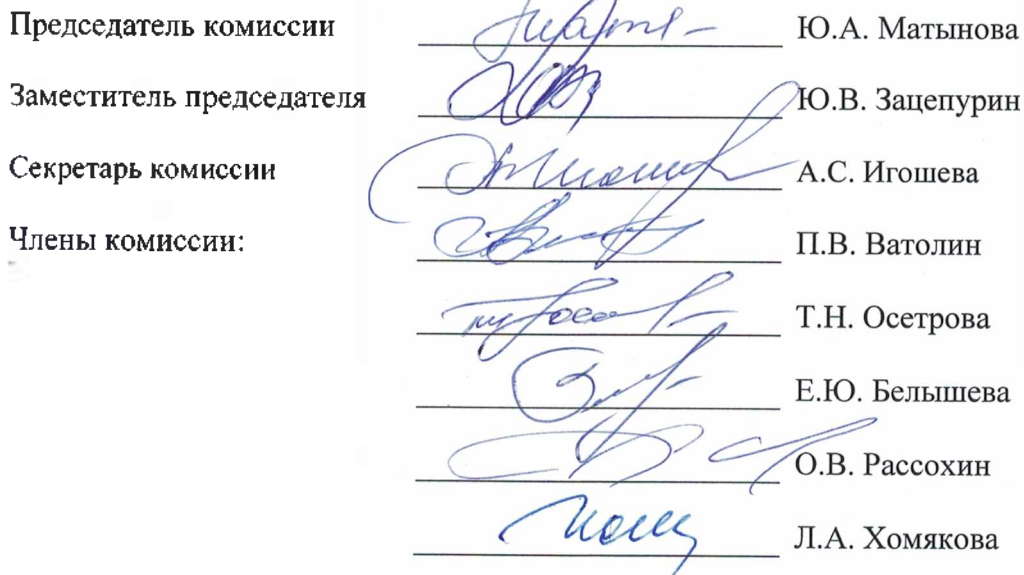 Председатель комиссии Ю.А. Матынова
Заместитель председателя Ю.В. Зацепурин
Секретарь комиссии А.С. Игошева
Члены комиссии: П.В. Ватолин
Т.Н. Осетрова
Е.Ю. Белышева
О.В. Рассохин
Л.А. Хомякова